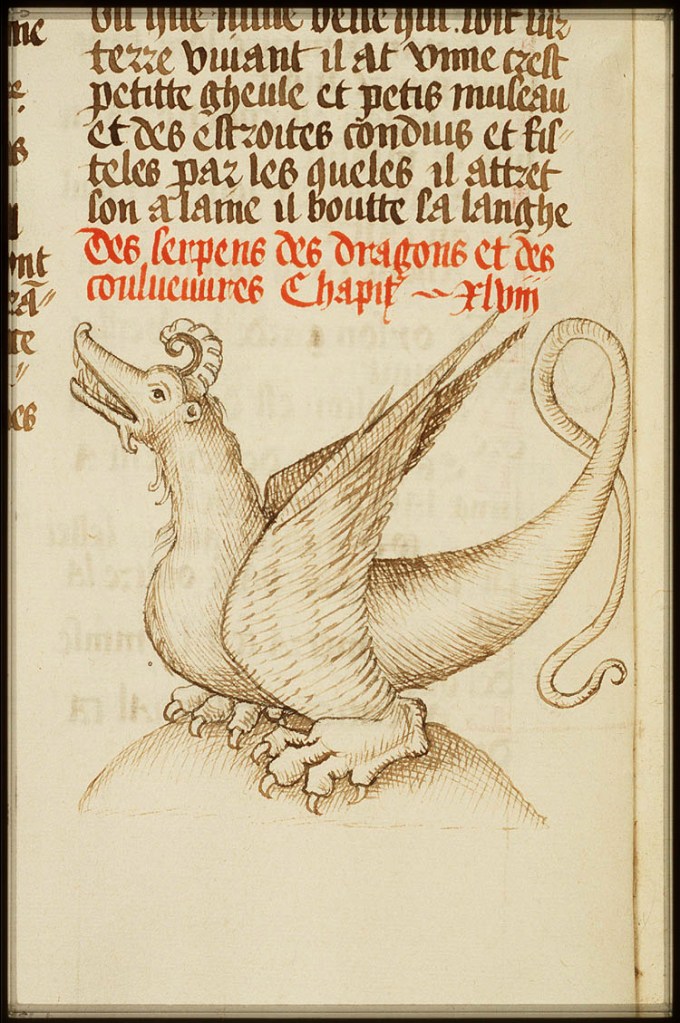 ou que nulle beste qui soit sur
terre viuant il at vnne crest
petitte gheule et petis museau
et des estroites conduis et fis
teles par les queles il attret
son alaine il boutte sa langhe
Des serpens des dragons et des
couluevures Chapit xlviij